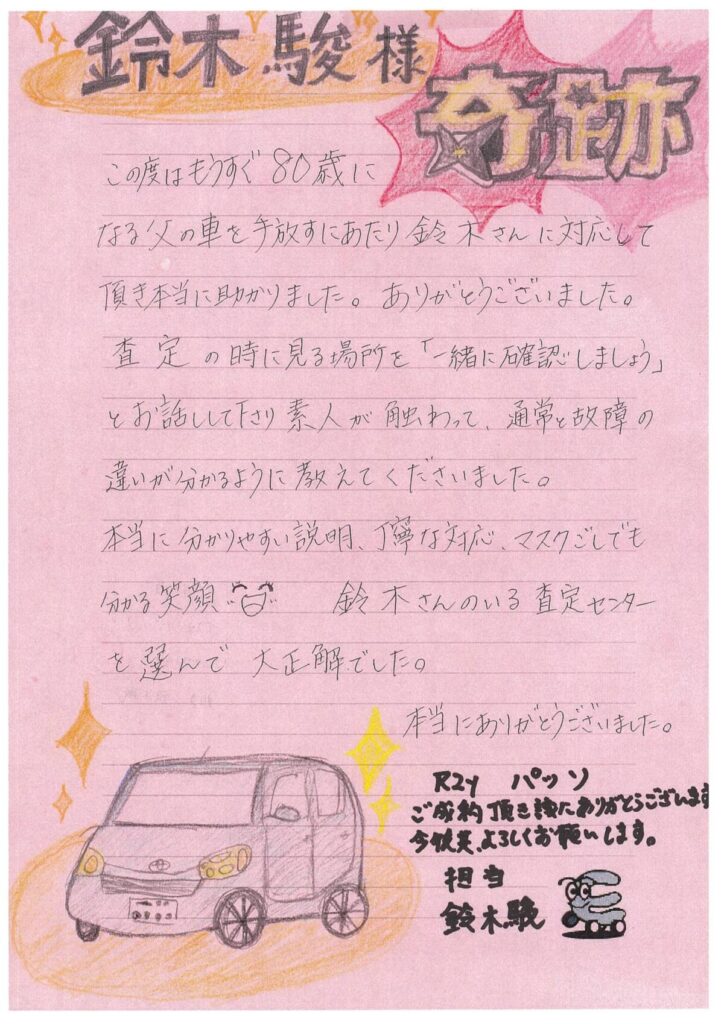 鈴木駿様
奇跡
この度はもうすぐ80歳に
なる父の車を手放すにあたり鈴木さんに対応して
頂き本当に助かりました。ありがとうございました。
査定の時に見る場所を「一緒に確認しましょう」
とお話しして下さり素人が触わって、通常と故障の
違いが分かるように教えてくださいました。
本当に分かりやすい説明、丁寧な対応、マスクごしでも
分かる笑顔 鈴木さんのいる査定センター
を選んで大正解でした。
本当にありがとうございました。
R2y パッソ
ご成約頂き誠にありがとうございます
今後共、よろしくお願いします。
担当
鈴木駿